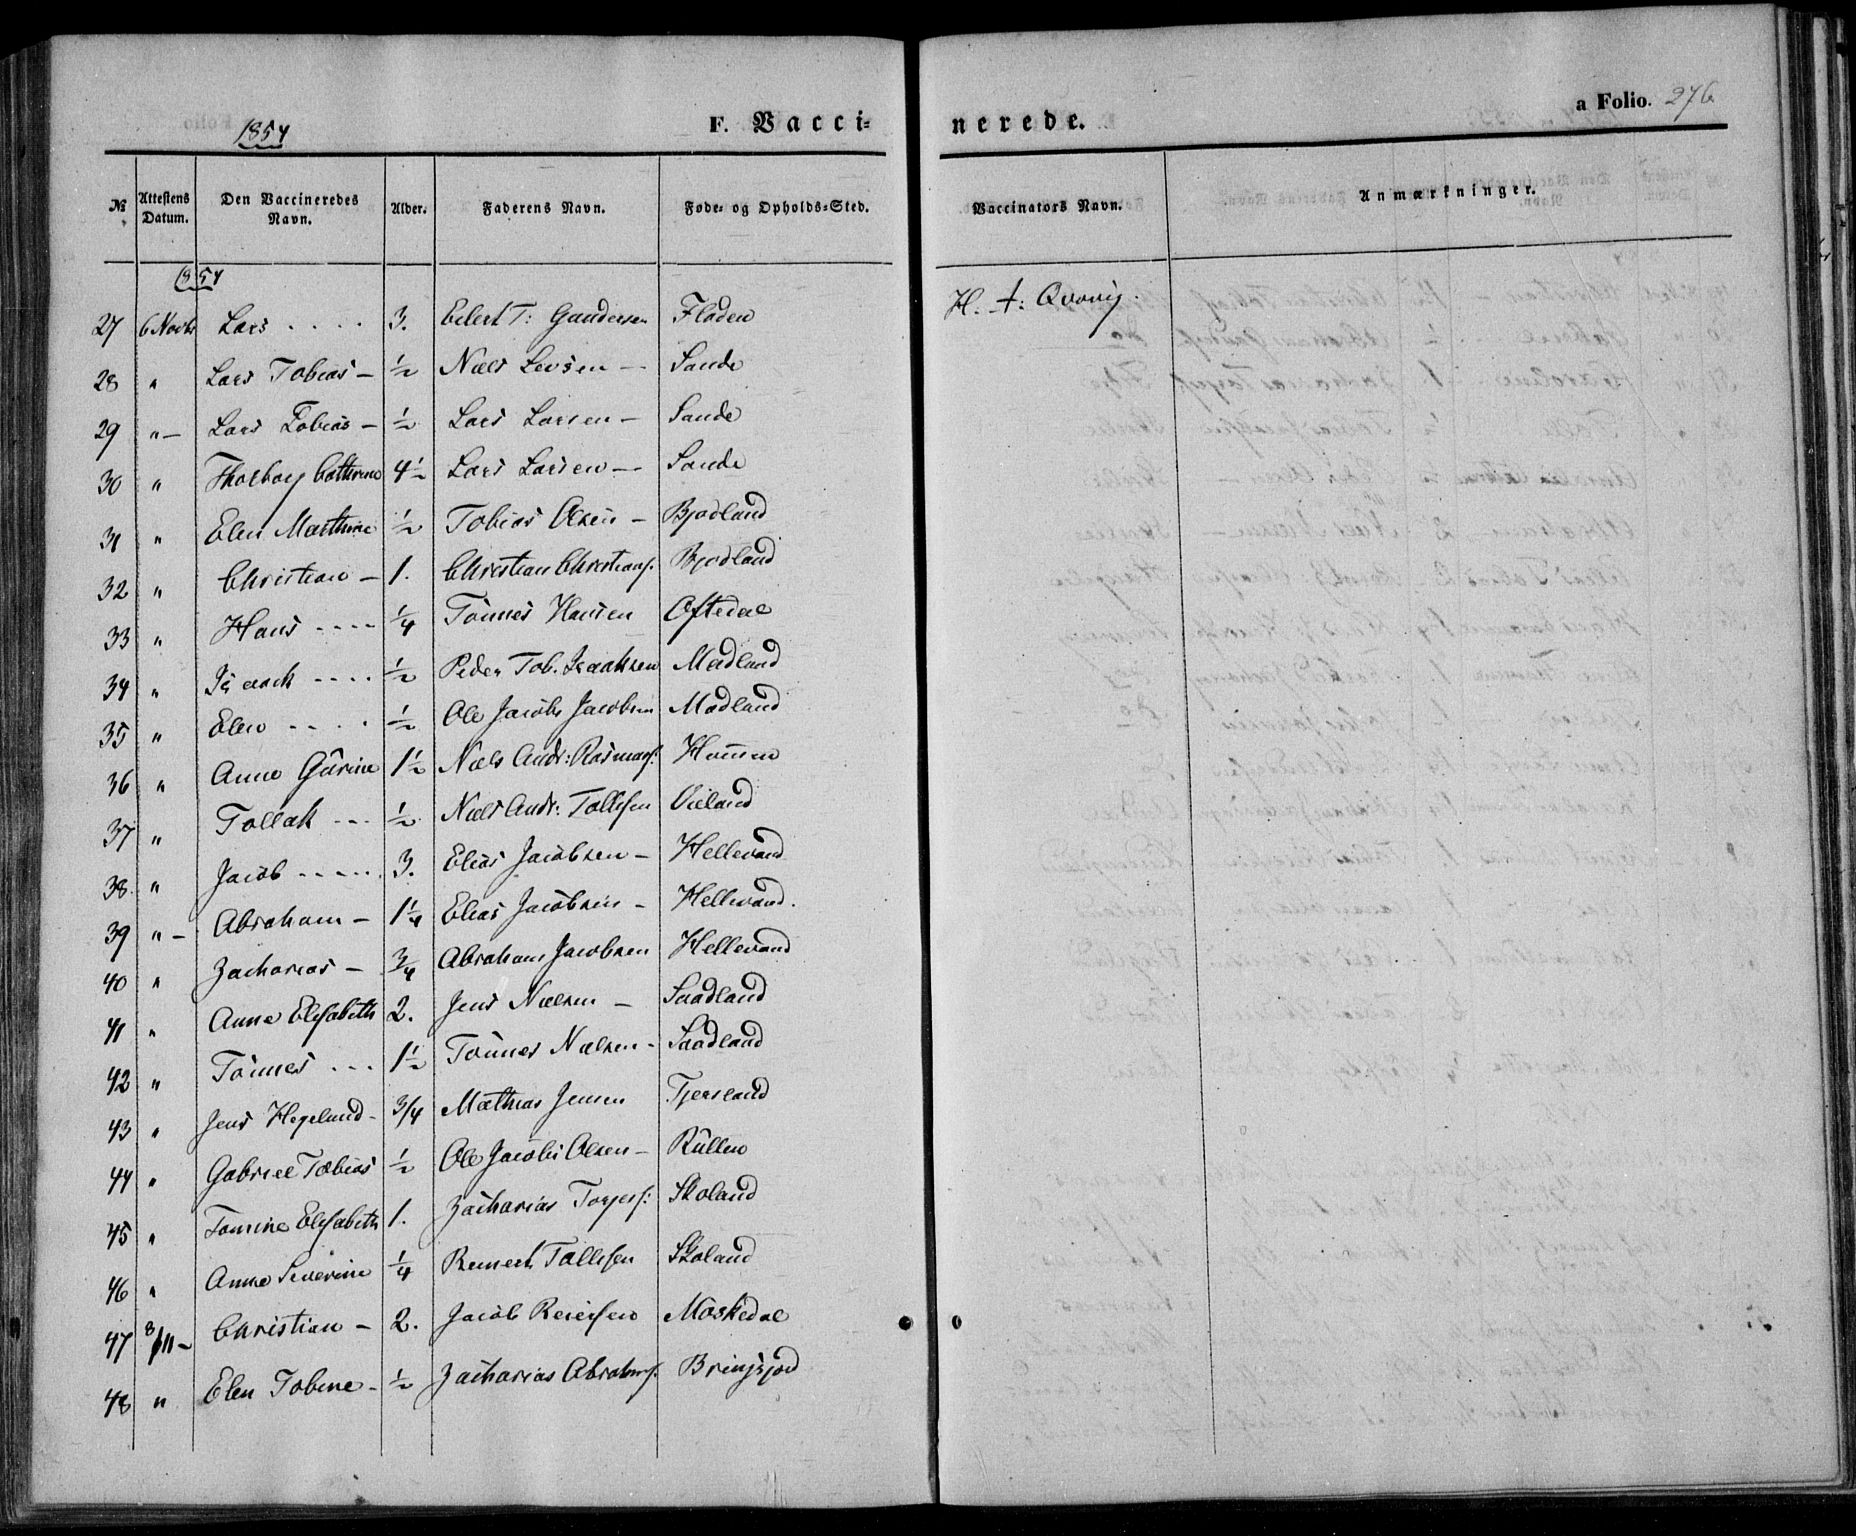 1854
F. Vacci=
nerede.
a Folio. 276
№ Attestens Datum. Den Vaccineredes Navn. Alder. Faderens Navn. Føde= og Opholds=Sted. Vaccinators Navn. Anmærkninger.
1854
27 6 Novbr Lars .... 3. Eilert T: Gundersen Floden H. A: Qvavig.
28 " Lars Tobias — ½ Niels Larsen — Sande
29 " — Lars Tobias — ½ Lars Larsen — Sande
30 " Thorborg Cathrine 4½ Lars Larsen — Sande
31 " Elen Marthine ½ Tobias Olsen — Bjodland
32 " Christian — 1. Christian Christians. Bjodland
33 " Hans .... ¼ Tönnes Hansen Oftedal
34 " Isaach .... ½ Peder Tob. Isaaksen Modland
35 " Elen .... ½ Ole Jacobs Jacobsen Modland
36 " Anne Gurine 1½ Niels Andr: Rasmuss: Hommen
37 " Tollak ... ½ Niels Andr: Tollefsen Øieland
38 " Jacob ..... 3. Elias Jacobsen — Hellevand
39 " — Abraham — 1¼ Elias Jacobsen — Hellevand.
40 " Zacharias — ¾ Abraham Jacobsen Hellevand
41 " Anne Elisabeth 2. Jens Nielsen — Saadland
42 " Tönnes ... 1½ Tönnes Nielsen — Saadland
43 " Jens Hegelund — 3/4 Mathias Jensen Tjersland
44 " Gabriel Tobias ½ Ole Jacobs Olsen — Rullen
45 " Tomine Elisabeth 1. Zacharias Torjers: Skoland
46 " Anne Severine ¼ Reinert Tollefsen Skoland
47 8/11 — Christian — 2. Jacob Reiersen Moskedal
48 " Elen Tobine — ½ Zacharias Abrahams. Bringsjord